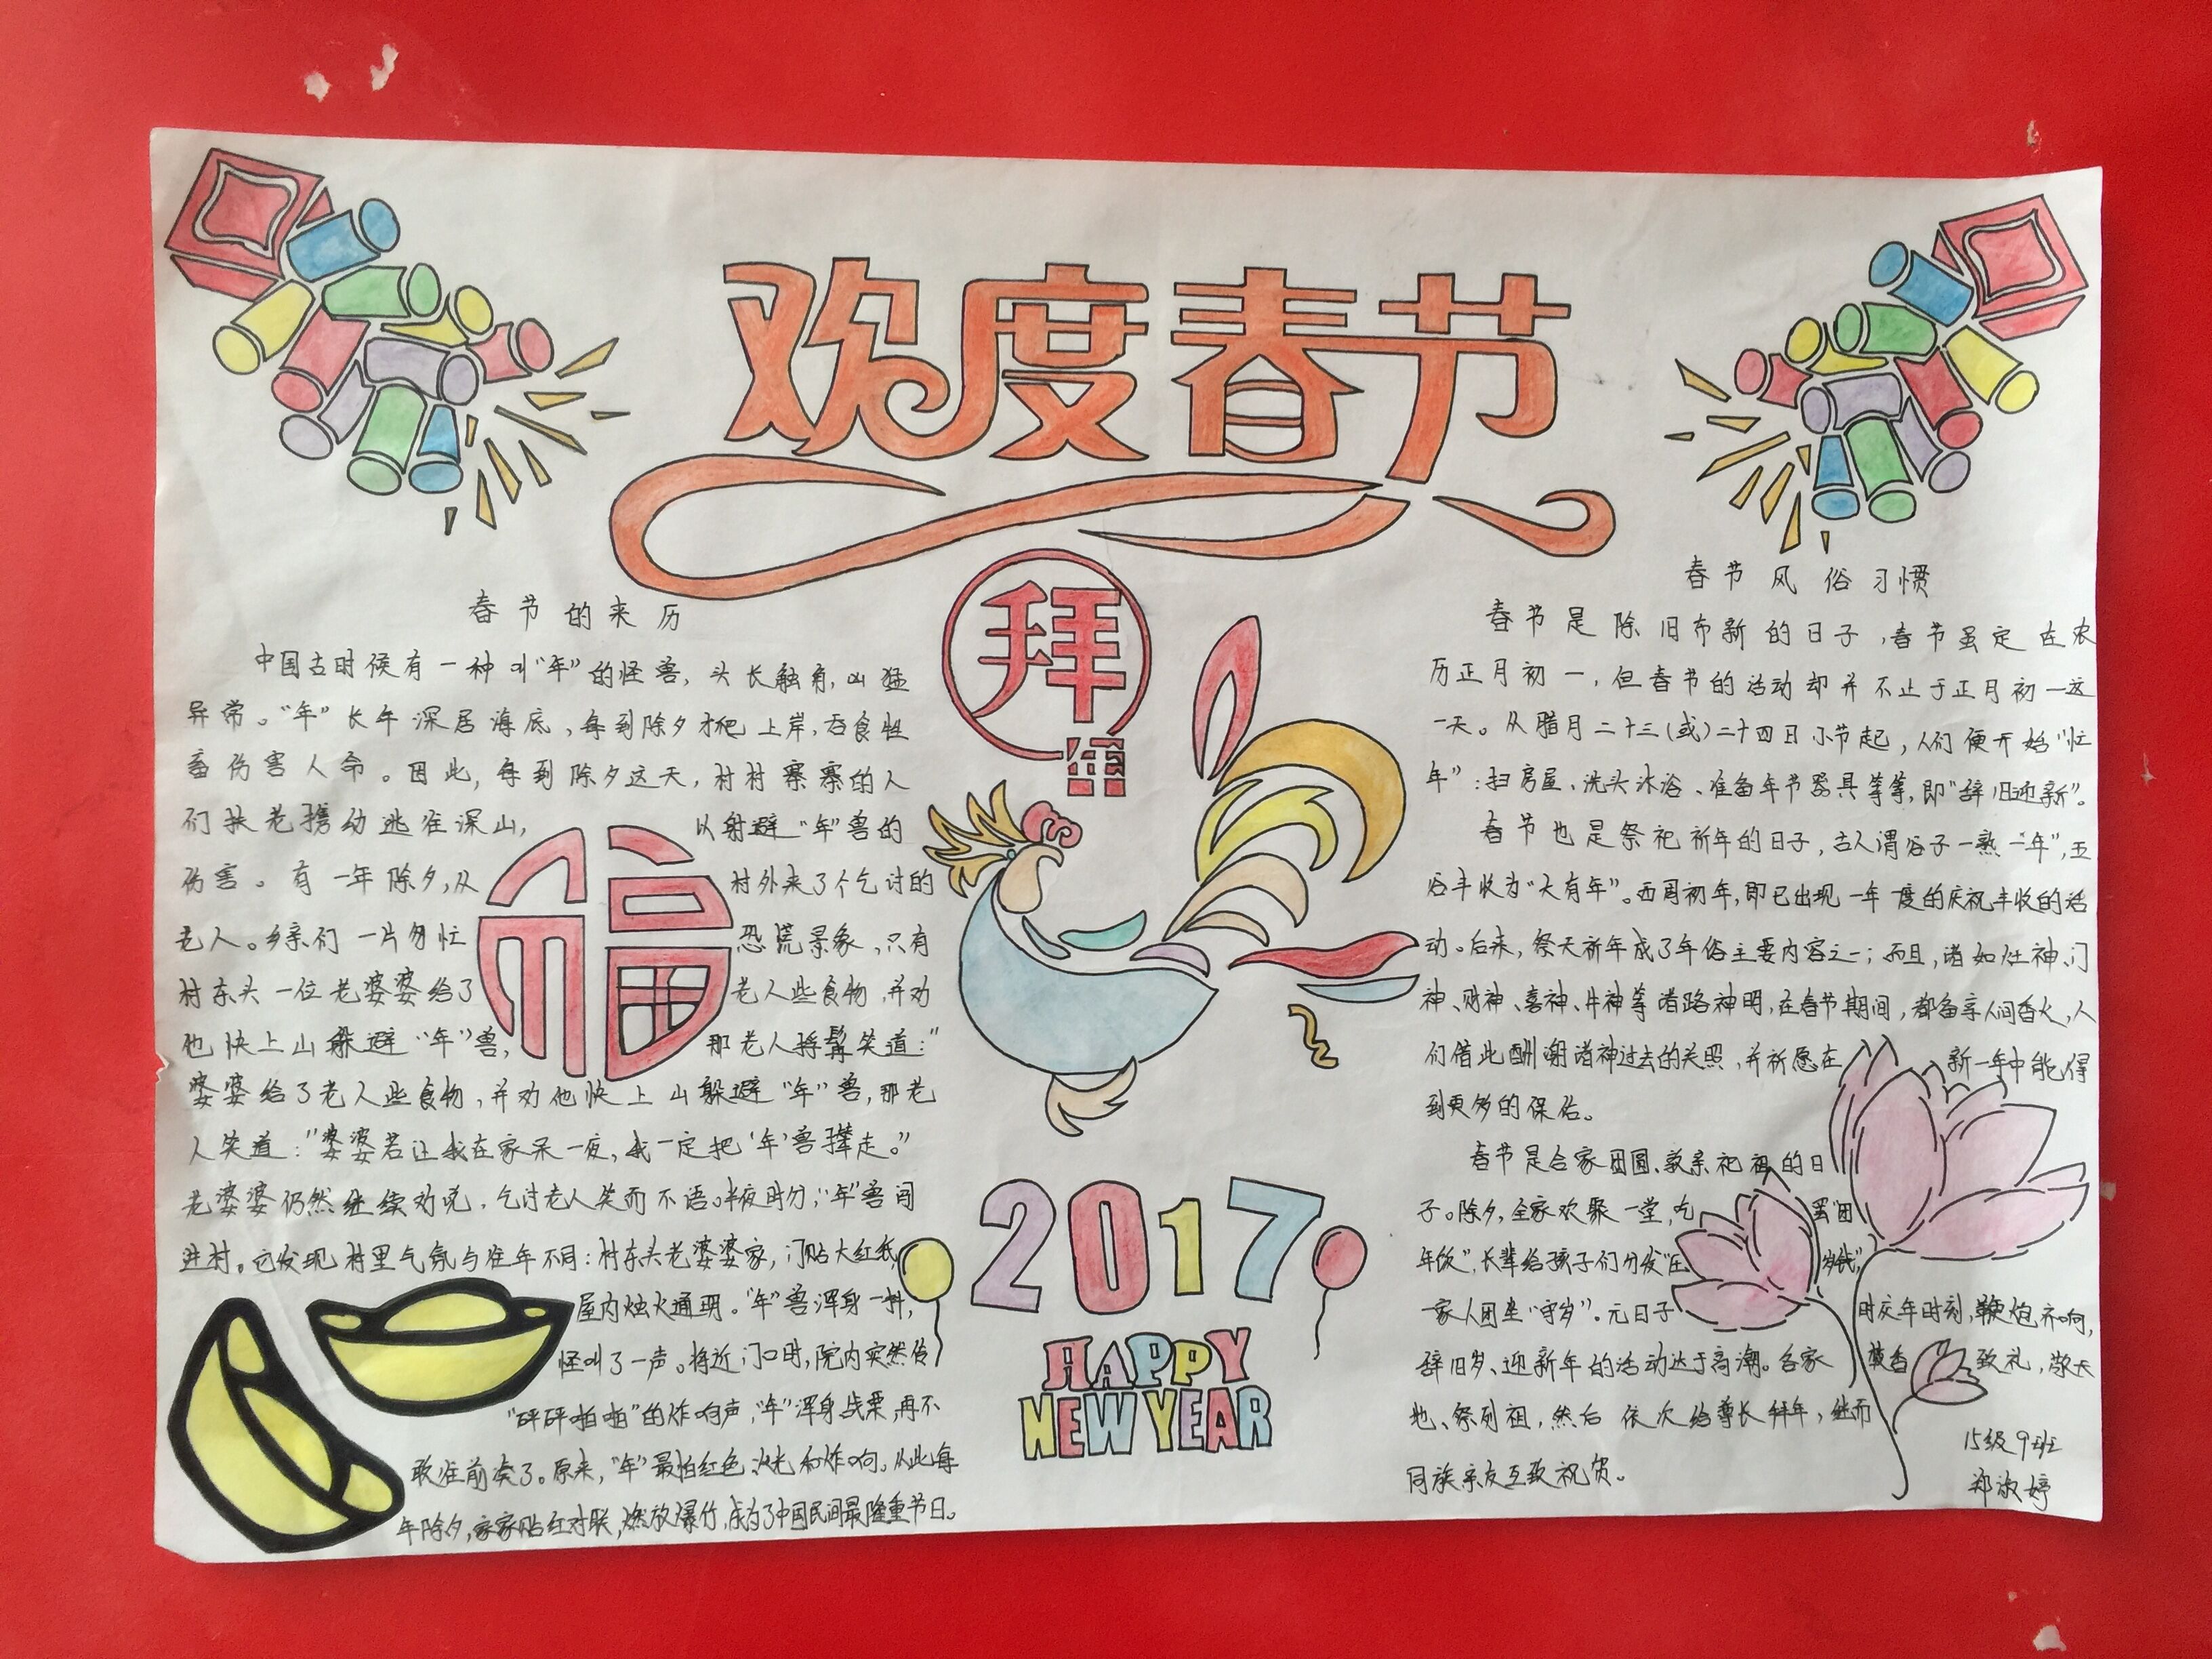 欢度春节
拜年
福
春节的来历
中国古时候有一种叫“年”的怪兽，头长触角，凶猛
异常。“年”长年深居海底，每到除夕才爬上岸，吞食牲
畜伤害人命。因此，每到除夕这天，村村寨寨的人
们扶老携幼逃往深山， 以躲避“年”兽的
伤害。有一年除夕，从 村外来了个乞讨的
老人。乡亲们一片匆忙 恐慌景象，只有
村东头一位老婆婆给了 老人些食物，并劝
他快上山躲避“年”兽， 那老人捋髯笑道：“
婆婆给了老人些食物，并劝他快上山躲避“年”兽，那老
人笑道：“婆婆若让我在家呆一夜，我一定把‘年’兽撵走。”
老婆婆仍然继续劝说，乞讨老人笑而不语。半夜时分，“年”兽闯
进村。它发现村里气氛与往年不同：村东头老婆婆家，门贴大红纸，
屋内烛火通明。“年”兽浑身一抖，
怪叫了一声。将近门口时，院内突然传
“砰砰啪啪”的炸响声，“年”浑身战栗，再不
敢往前凑了。原来，“年”最怕红色、火光和炸响。从此每
年除夕，家家贴红对联，燃放爆竹，成为了中国民间最隆重节日。
2017
HAPPY
NEW YEAR
春节风俗习惯
春节是除旧布新的日子，春节虽定在农
历正月初一，但春节的活动却并不止于正月初一这
一天。从腊月二十三（或）二十四日小节起，人们便开始“忙
年”：扫房屋、洗头沐浴、准备年节器具等等，即“辞旧迎新”。
春节也是祭祀祈年的日子，古人谓谷子一熟一年”，五
谷丰收为“大有年”。西周初年，即已出现一年一度的庆祝丰收的活
动。后来，祭天祈年成了年俗主要内容之一；而且，诸如灶神、门
神、财神、喜神、井神等诸路神明，在春节期间，都备享人间香火，人
们借此酬谢诸神过去的关照，并祈愿在 新一年中能得
到更多的保佑。
春节是合家团圆、敦亲祀祖的日
子。除夕，全家欢聚一堂，吃 罢“团
年饭”，长辈给孩子们分发“压 岁钱”，
一家人团坐“守岁”。元日子 时交年时刻，鞭炮齐响，
辞旧岁、迎新年的活动达于高潮。各家 焚香 致礼，敬天
地、祭列祖，然后依次给尊长拜年，继而
同族亲友互致祝贺。
15级9班
郑淑婷